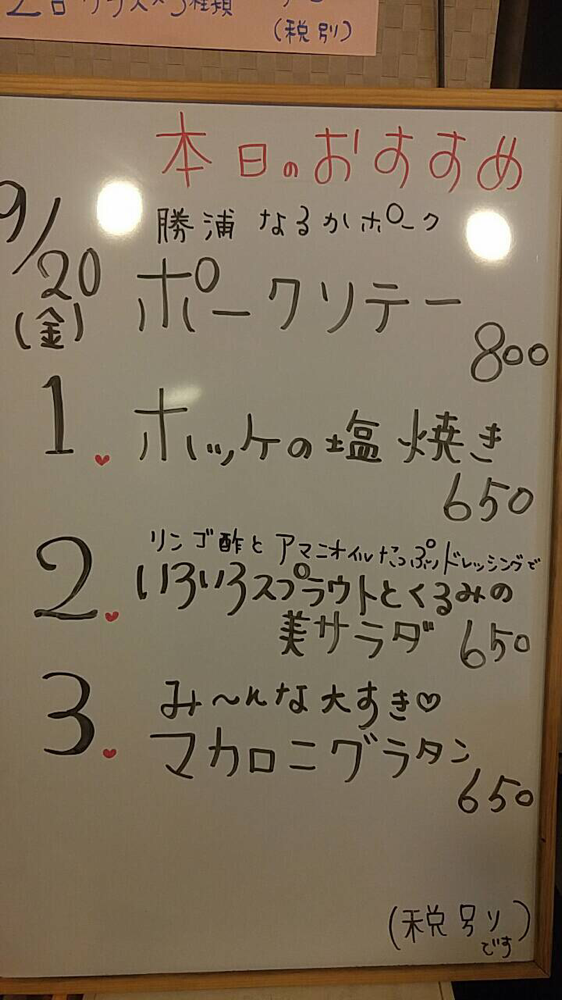 (税別)
本日のおすすめ
9/20
(金)
勝浦 なるかポーク
ポークソテー
800
1.
ホッケの塩焼き
650
2.
リンゴ酢とアマニオイルたっぷりドレッシングで
いろいろスプラウトとくるみの
美サラダ 650
3.
み〜んな大すき♡
マカロニグラタン
650
(税別り)
です